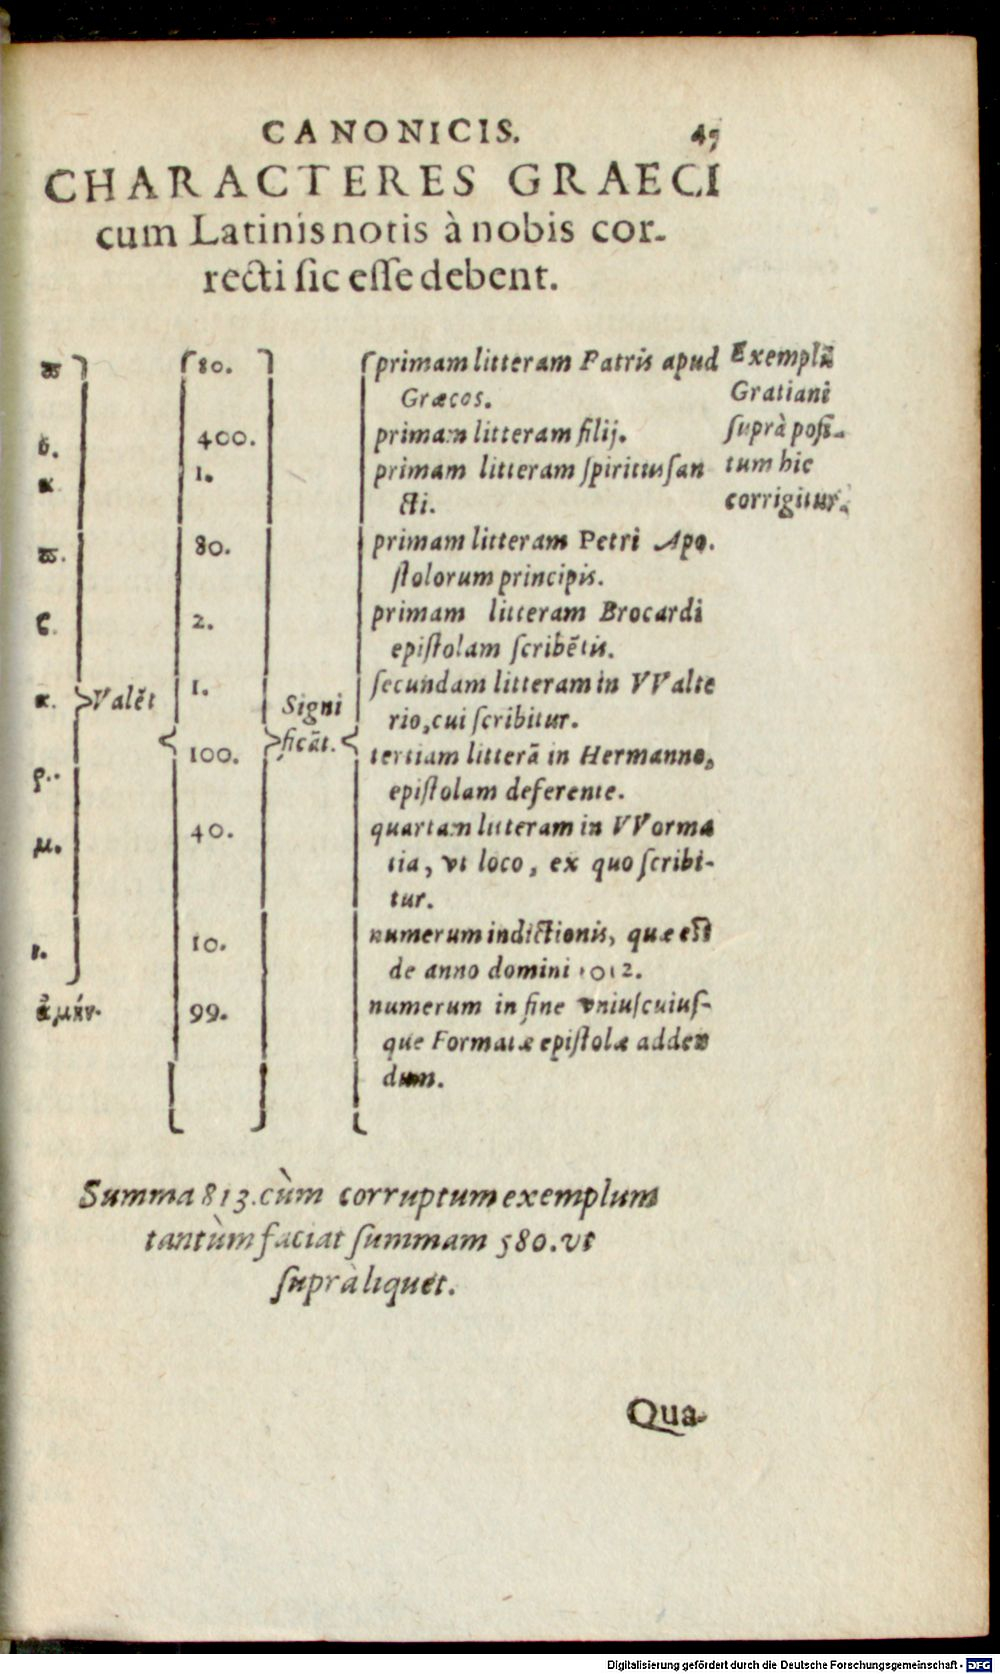 CANONICIS. 45
CHARACTERES GRAECI
cum Latinis notis à nobis cor-
recti sic esse debent.
ϖ 80. primam litteram Patris apud
Græcos.
400. primam litteram filij.
α 1. primam litteram spiritus san
cti.
ϖ. 80. primam litteram Petri Apo.
stolorum principis.
2. primam litteram Brocardi
epistolam scribẽtis.
α. Valẽt 1. Signi secundam litteram in VValte
rio, cui scribitur.
ficãt.
ρ.. 100. tertiam litterã in Hermanno,
epistolam deferente.
μ. 40. quartam litteram in VVorma
tia, vt loco, ex quo scribi-
tur.
ι. 10. numerum indictionis, quæ est
de anno domini 1012.
ἀμήν. 99. numerum in fine vniuscuius-
que Formatæ epistolæ adden
dum.
Exemplũ
Gratiani
suprà posi-
tum hic
corrigitur.
Summa 813. cùm corruptum exemplum
tantùm faciat summam 580. vt
suprà liquet.
Qua-
Digitalisierung gefördert durch die Deutsche Forschungsgemeinschaft - DFG